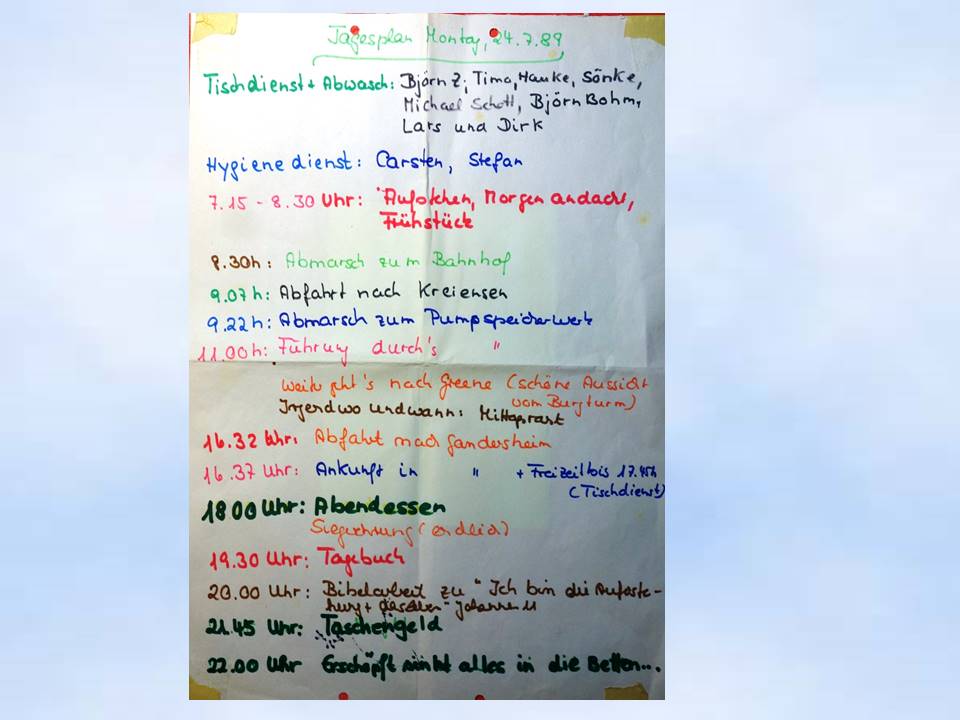 Tagesplan Montag, 24.7.89
Tischdienst + Abwasch: Björn Z., Timo, Hauke, Sönke,
Michael Schott, Björn Bohm,
Lars und Dirk
Hygienedienst: Carsten, Stefan
7.15 - 8.30 Uhr: Morgenandacht,
Frühstück
8.30h: Abmarsch zum Bahnhof
9.07h: Abfahrt nach Kreiensen
9.22h: Abmarsch zum Pumpspeicherwerk
11.00h: Führung durch's "
weiter geht's nach Greene (schöne Aussicht
vom Burgturm)
Irgendwo und wann: Mittagsrast
16.32 Uhr: Abfahrt nach Gandersheim
16.37 Uhr: Ankunft in " + Freizeit bis 17.45h
(Tischdienst)
18 00 Uhr: Abendessen
Siegerehrung (endlich)
19.30 Uhr: Tagebuch
20.00 Uhr: Bibelarbeit zu "Ich bin die Auferste-
hung + " Johannes 11
21.45 Uhr: Taschengeld
22.00 Uhr Erschöpft sinkt alles in die Betten...